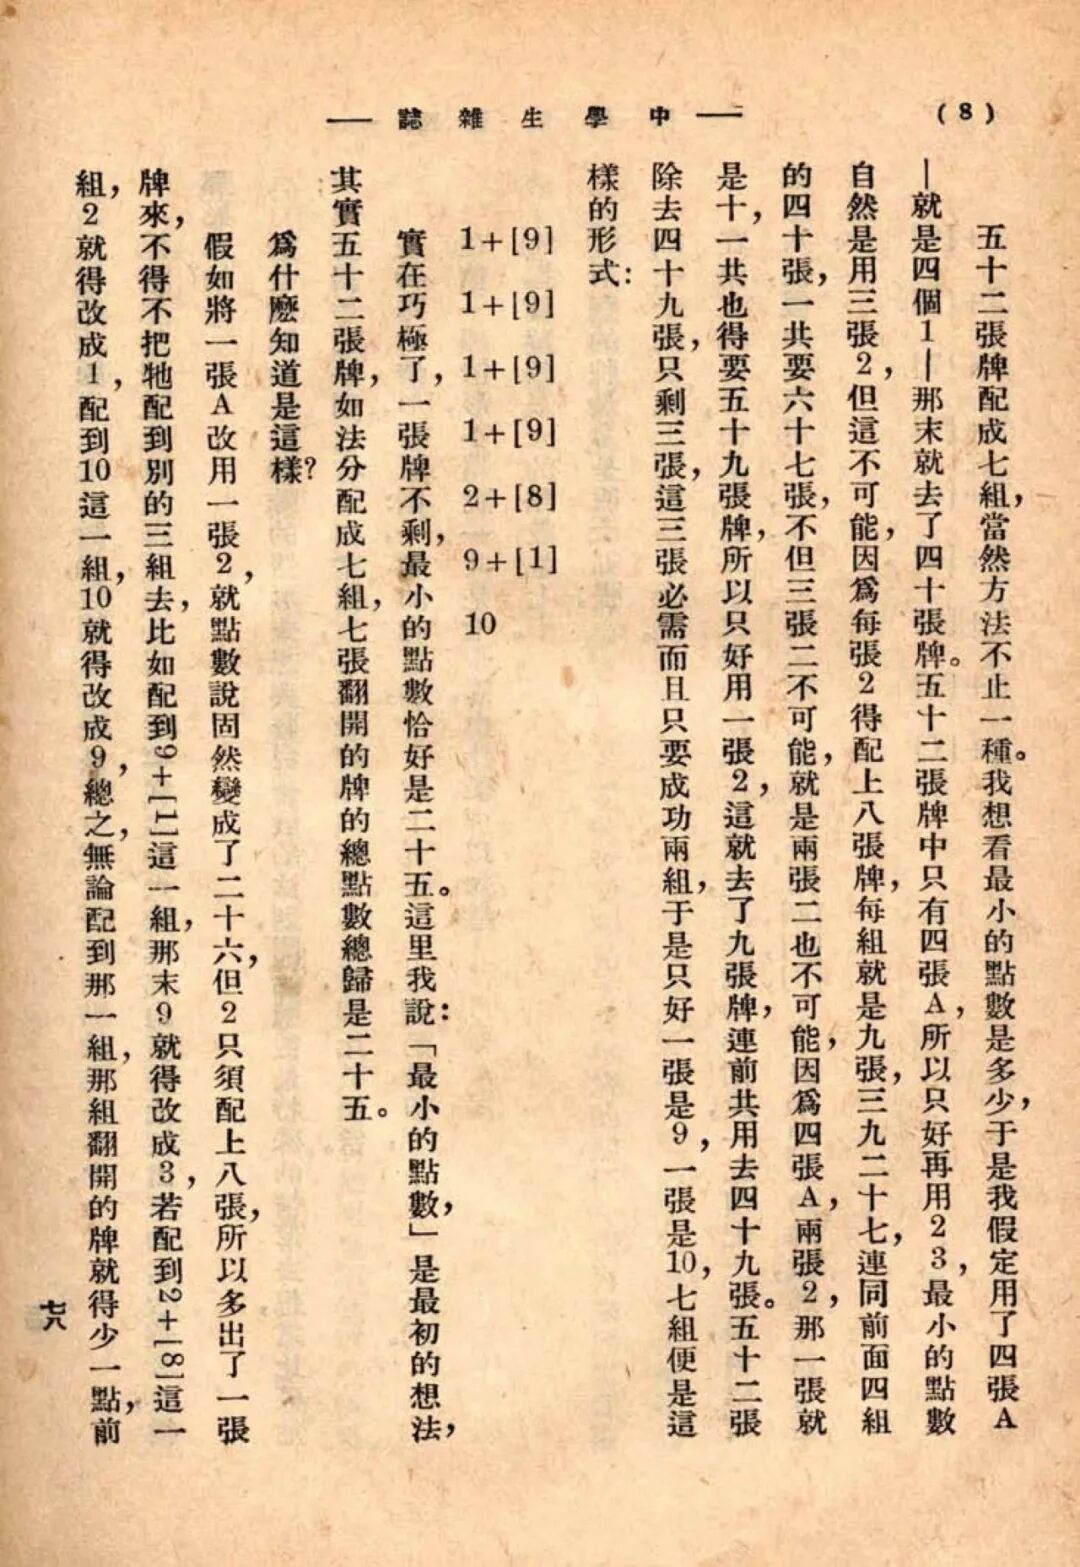 (8)
中學生雜誌
五十二張牌配成七組，當然方法不止一種。我想看最小的點數是多少，于是我假定用了四張A
—就是四個1—那末就去了四十張牌。五十二張牌中只有四張A，所以只好再用2 3，最小的點數
自然是用三張2，但這不可能，因爲每張2得配上八張牌，每組就是九張，三九二十七，連同前面四組
的四十張，一共要六十七張，不但三張二不可能，就是兩張二也不可能，因爲四張A，兩張2，那一張就
是十，一共也得要五十九張牌，所以只好用一張2，這就去了九張牌，連前共用去四十九張。五十二張
除去四十九張，只剩三張，這三張必需而且只要成功兩組，于是只好一張是9，一張是10，七組便是這
樣的形式：
1+[9]
1+[9]
1+[9]
1+[9]
2+[8]
9+[1]
10
實在巧極了，一張牌不剩，最小的點數恰好是二十五。這里我說：「最小的點數，」是最初的想法，
其實五十二張牌，如法分配成七組，七張翻開的牌的總點數總歸是二十五。
爲什麽知道是這樣？
假如將一張A改用一張2，就點數說固然變成了二十六，但2只須配上八張，所以多出了一張
牌來，不得不把牠配到別的三組去，比如配到9+[1]這一組，那末9就得改成3，若配到2+[8]這一
組，2就得改成1，配到10這一組，10就得改成9，總之，無論配到那一組，那組翻開的牌就得少一點，前
七八